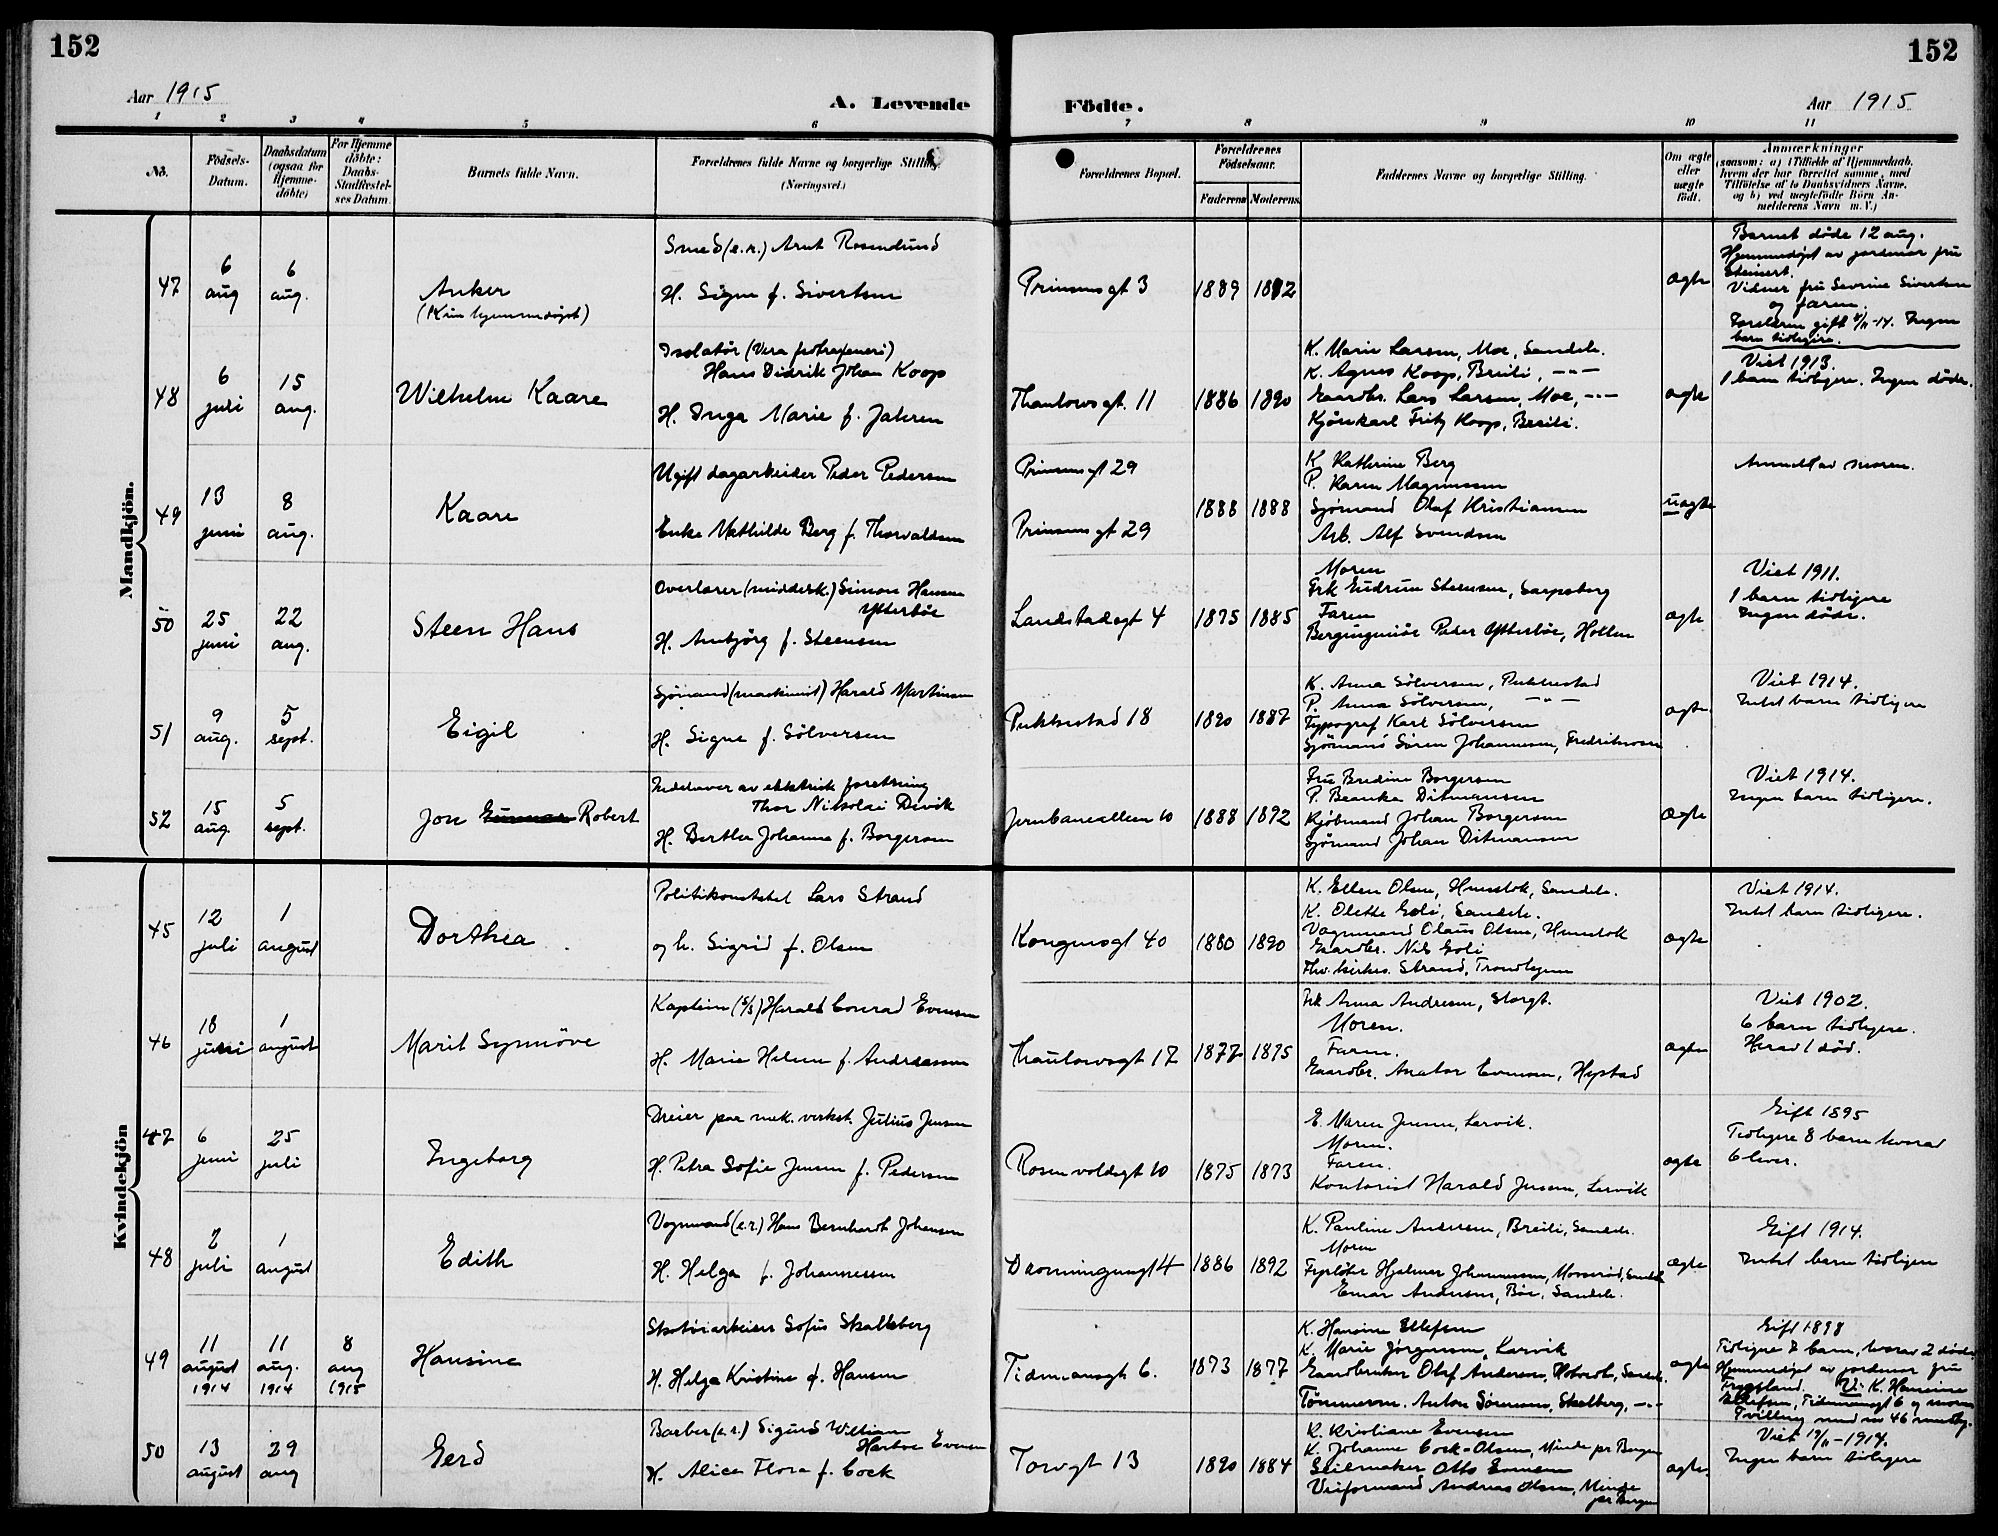 152
152
Aar 1915
A. Levende
Födte.
Aar 1915
1 2 3 4 5 6 7 8 9 10 11
No.
Födsels-Datum.
Daabsdatum (ogsaa for Hjemme-döbte)
For Hjemme döbte: Daabs-Stadfæstel-ses Datum.
Barnets fulde Navn.
Forældrenes fulde Navne og borgerlige Stilling. (Næringsvei.)
Forældrenes Bopæl.
Forældrenes Födselsaar.
Faderens Moderens
Faddernes Navne og borgerlige Stilling.
Om ægte eller uægte födt.
Anmærkninger
(saasom: a) i Tilfælde af Hjemmedaab, hvem der har forrettet samme, med Tilföielse af to Daabsvidners Navne, og b) ved uægtefödte Börn An-melderens Navn m. V.)
Mandkjön.
47
6 aug
6 aug.
Anker
(Kun hjemmedøpt)
Smed (e.r.) Arnt Rosenlund
H. Signe f. Sivertsen
Prinsensgt 3
1889 1892
ægte
Barnet døde 12 aug.
Hjemmedøpt av jordmor fru Steinert.
Vidner fru Severine Sivertsen
og faren.
Forældren gift -14. Ingen
barn tidligere.
48
6 juli
15 aug.
Wilhelm Kaare
Isolatør (Vera fedtraffineri)
Hans Didrik Johan Koop
H. Inga Marie f. Jahren
Thaulowsgt. 11
1886 1890
K. Marie Larsen, Moe, Sandeh.
K. Agnes Koop, Breili, -"-
Gaardbr. Lars Larsen, Moe, -"-
Kjørekarl Fritz Koop, Breili.
ægte
Viet 1913.
1 barn tidligere. Ingen døde.
49
13 juni
8 aug.
Kaare
Ugift dagarbeider Peder Pedersen
Enke Mathilde Berg f. Thorvaldsen
Prinsensgt 29
Prinsensgt 29
1888 1888
K Kathrine Berg
P. Karen Magnussen
Sjømand Olaf Kristiansen
Arb. Alf Svendsen
uægte
Anmeldt av moren.
50
25 juni
22 aug.
Steen Hans
Overlærer (middelsk.) Simon Hansen
Ytterbøe
H. Anbjørg f. Steensen
Landstadsgt 4
1875 1885
Moren
Frk Gudrun Steensen, Sarpsborg
Faren
Bergingeniør Peder Ytterbøe, Holla
ægte
Viet 1911.
1 barn tidligere
Ingen døde.
51
9 aug.
5 sept.
Eigil
Sjømand (maskinist) Harald Martinsen
H. Signe f. Sölversen
Pukkestad 18
1890 1887
K. Anna Sölversen, Pukkestad
P. Anna Sölversen, -"-
Typograf Karl Sölversen
Sjömand Sören Johannessen, Fredriksværn
ægte
Viet 1914.
Intet barn tidligere
52
15 aug.
5 sept.
Jon Gunnar Robert
Indehaver av elektrisk forretning
Thor Nikolai Devik
H. Berthe Johanne f. Borgersen
Jernbanealleen 10
1888 1892
Fru Bredine Borgersen
P. Bianka Ditmansen
Kjöbmand Johan Borgersen
Sjömand Johan Ditmansen
ægte
Viet 1914.
Ingen barn tidligere.
Kvindekjön
45
12 juli
1 august
Dorthea
Politikonstabel Lars Strand
og h. Sigrid f. Olsen
Kongensgt 40
1880 1890
K. Ellen Olsen, Hunstok, Sandeh.
K. Olette Goli, Sandeh.
Vognmand Claus Olsen, Hunstok
Gaardbr. Nils Goli
Strand, Trondhjem
ægte
Viet 1914.
Intet barn tidligere.
46
18 juni
1 august
Marit Synnöve
Kaptein (S/S) Harald Conrad Evensen
H. Marie Helene f. Andreassen
Thaulowsgt 17
1877 1875
Frk Anna Andresen, Storgt.
Moren.
Faren.
Gaardbr. Anator Evensen, Hystad
ægte
Viet 1902.
6 barn tidligere.
Herav 1 död.
47
6 juni
25 juli
Ingeborg
Dreier paa mek. verkst. Julius Jensen
H. Petra Sofie Jensen f. Pedersen
Rosenvoldsgt 10
1875 1873
E. Maren Jensen, Larvik.
Moren.
Faren.
Kontorist Harald Jensen, Larvik
ægte
Gift 1895
Tidligere 8 barn hvorav
6 lever.
48
2 juli
1 august
Edith
Vognmand (e.r.) Hans Bernhardt Johansen
H. Helga f. Johannessen
Dronningensgt 4
1886 1892
K. Pauline Andersen, Breili, Sandeh.
Moren
Fyrböter Hjalmar Johannessen, Moveröd, Sandeh
Einar Andersen, Böe, Sandeh.
ægte
Gift 1914.
Intet barn tidligere
49
11 august 1914
11 aug. 1914
8 aug 1915
Hansine
Skotöiarbeider Sofus Skalleberg
H. Helga Kristine f. Hansen
Tidemansgt 6.
1873 1877
K. Hansine Ellefsen
K. Marie Jörgensen, Larvik
Gaardbruker Olaf Andersen, Sandeh.
Tömmerm. Anton Sörensen, Skalberg, -"-
ægte
Gift 1898
Tidligere 7 barn, hvorav 2 döde.
Hjemmedöpt av jordmor fru
Frygtland. Vi: K. Hansine
Ellefsen, Tidemansgt 6 og moren
Tvilling med no 46
50
13 august
29 aug
Gerd
Barber (e.r.) Sigurd William
Evensen
H. Alice Flora f. Cock
Torvgt 13
1890 1884
K Kristiane Evensen
K. Johanne Cock-Olsen, Minde pr Bergen
Seilmaker Otto Evensen
Veiformand Andreas Olsen, Minde
pr Bergen
ægte
Viet -1914.
Ingen barn tidligere